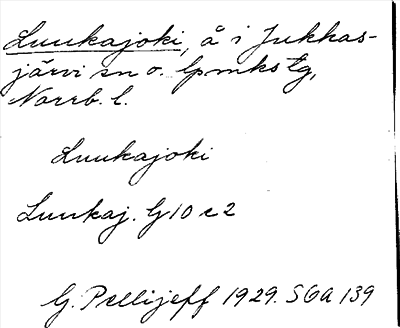 Luukajoki, å i Jukkas-
järvi sn o. lpmkstg,
Norrb. l.
Luukajoki
Luukaj. G10 c2
G. Pellijeff 1929. SOA 139